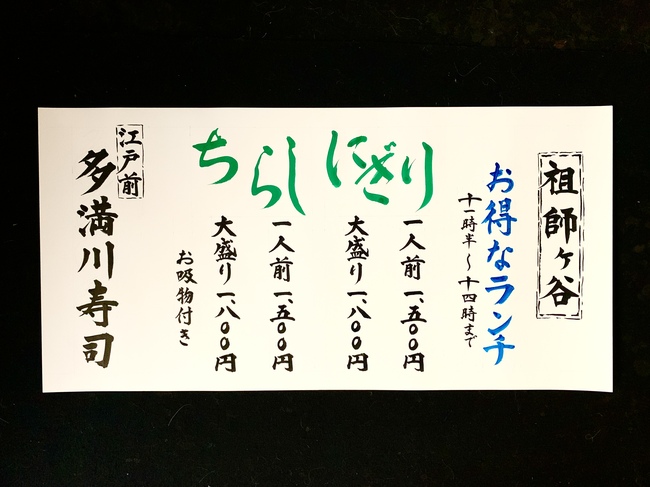 祖師ヶ谷
お得なランチ
十一時半〜十四時まで
にぎり
一人前 一、五〇〇円
大盛り 一、八〇〇円
ちらし
一人前 一、五〇〇円
大盛り 一、八〇〇円
お吸物付き
江戸前
多満川寿司